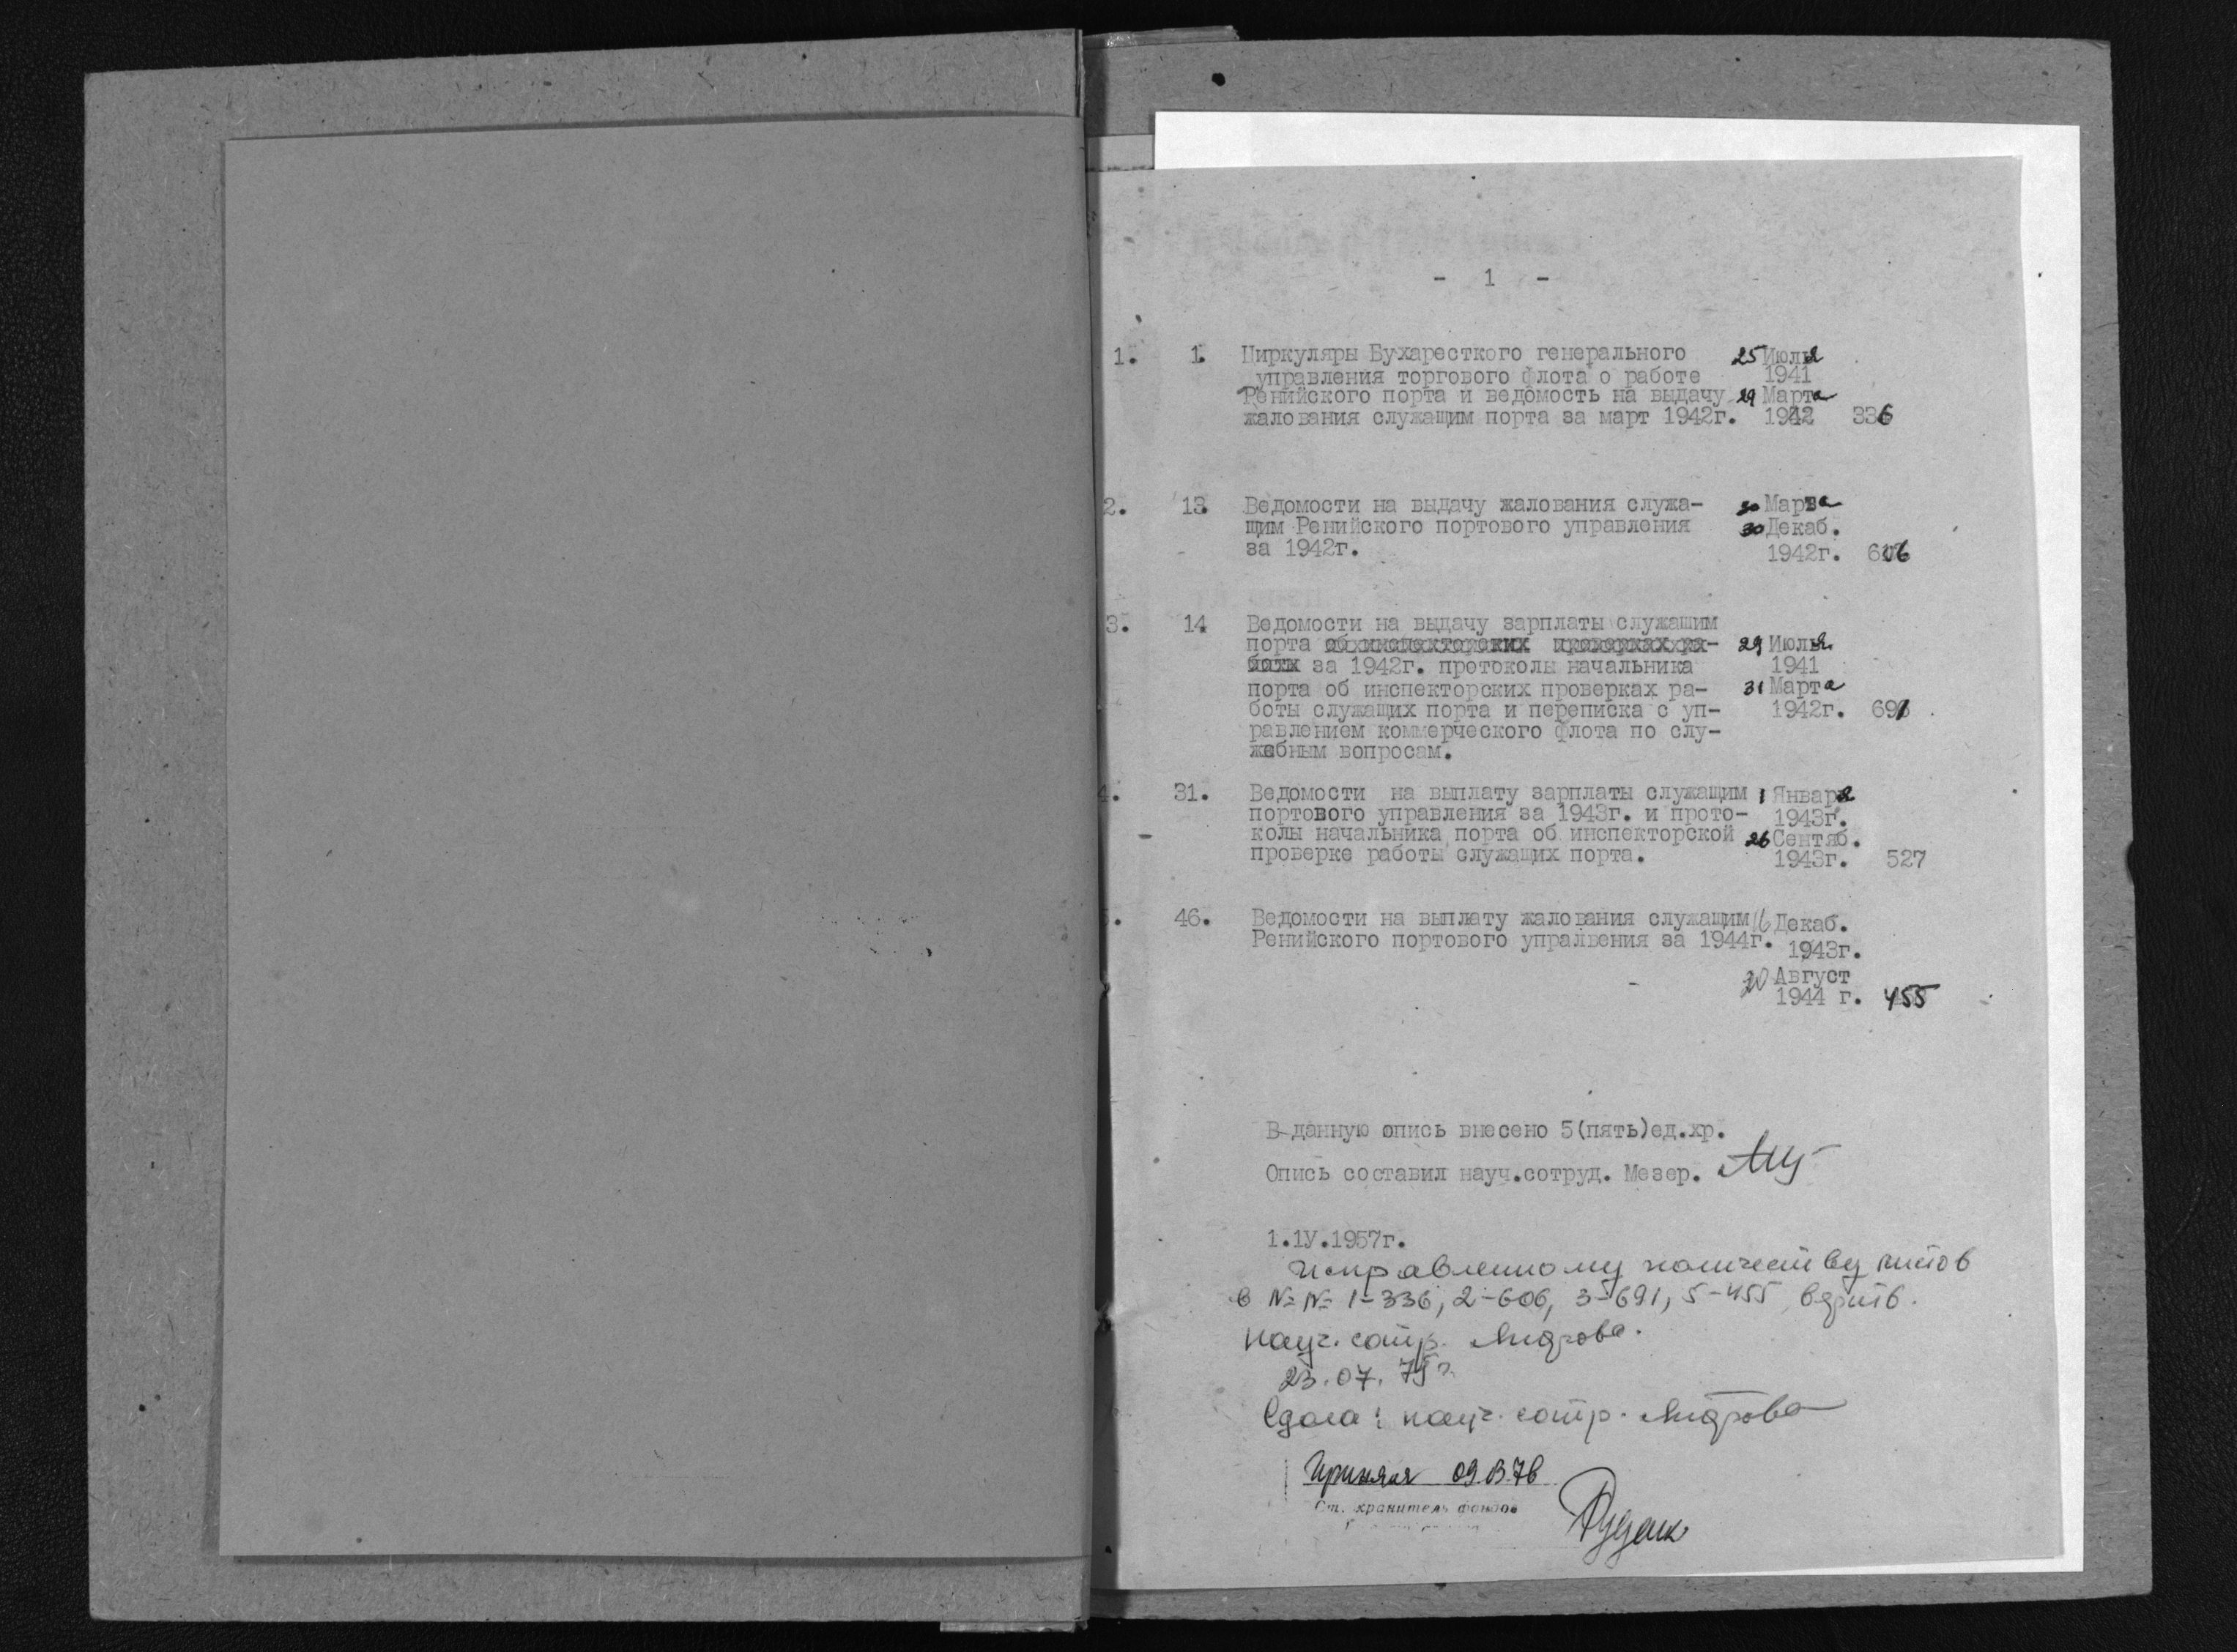 - 1 -
1. 1. Циркуляры Бухаресткого генерального 25 Июля
управления торгового флота о работе 1941
Ренийского порта и ведомость на выдачу 29 Марта
жалования служащим порта за март 1942г. 1942 336
2. 13. Ведомости на выдачу жалования служа- 30 Марта
щим Ренийского портового управления 30 Декаб.
за 1942г. 1942г. 606
3. 14 Ведомости на выдачу зарплаты служащим
порта об инспекторских проверках ра- 29 Июля
боты за 1942г. протоколы начальника 1941
порта об инспекторских проверках ра- 31 Марта
боты служащих порта и переписка с уп- 1942г. 691
равлением коммерческого флота по слу-
жебным вопросам.
4. 31. Ведомости на выплату зарплаты служащим 1 Января
портового управления за 1943г. и прото- 1943г.
колы начальника порта об инспекторской 26 Сентяб.
проверке работы служащих порта. 1943г. 527
46. Ведомости на выплату жалования служащим 16 Декаб.
Ренийского портового упралвения за 1944г. 1943г.
Август
1944 г. 455
В данную опись внесено 5(пять)ед.хр.
Опись составил науч.сотруд. Мезер.
1.1У.1957г.
Исправленному количеству листов
в №№ 1-336, 2-606, 3-691, 5-455 верить.
Науч. сотр.
23.07.75г
Сдала: науч. сотр.
Приняла
Ст. хранитель фондов